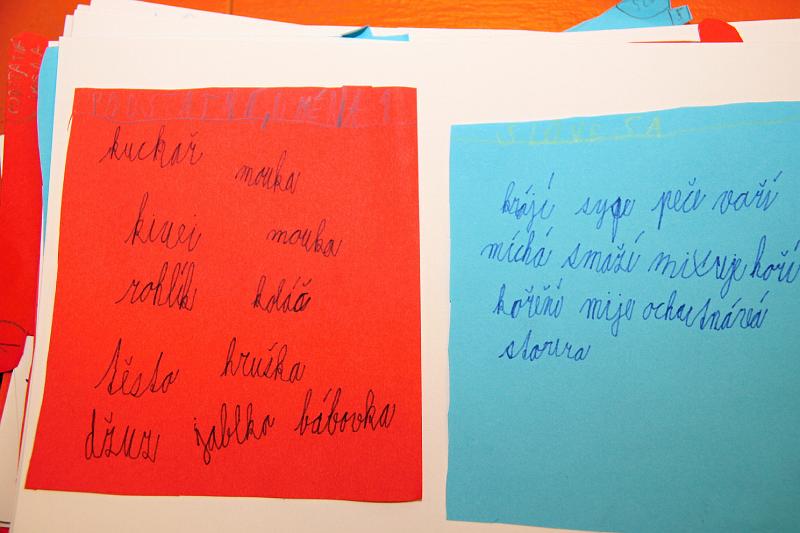 PODSTATNÁ JMÉNA
kuchař mouka
kivei mouka
rohlík koláč
těsto hruška
džuz jablko bábovka
SLOVESA
krájí sype peče vaří
míchá smaží mixuje hoří
koření mije ochutnává